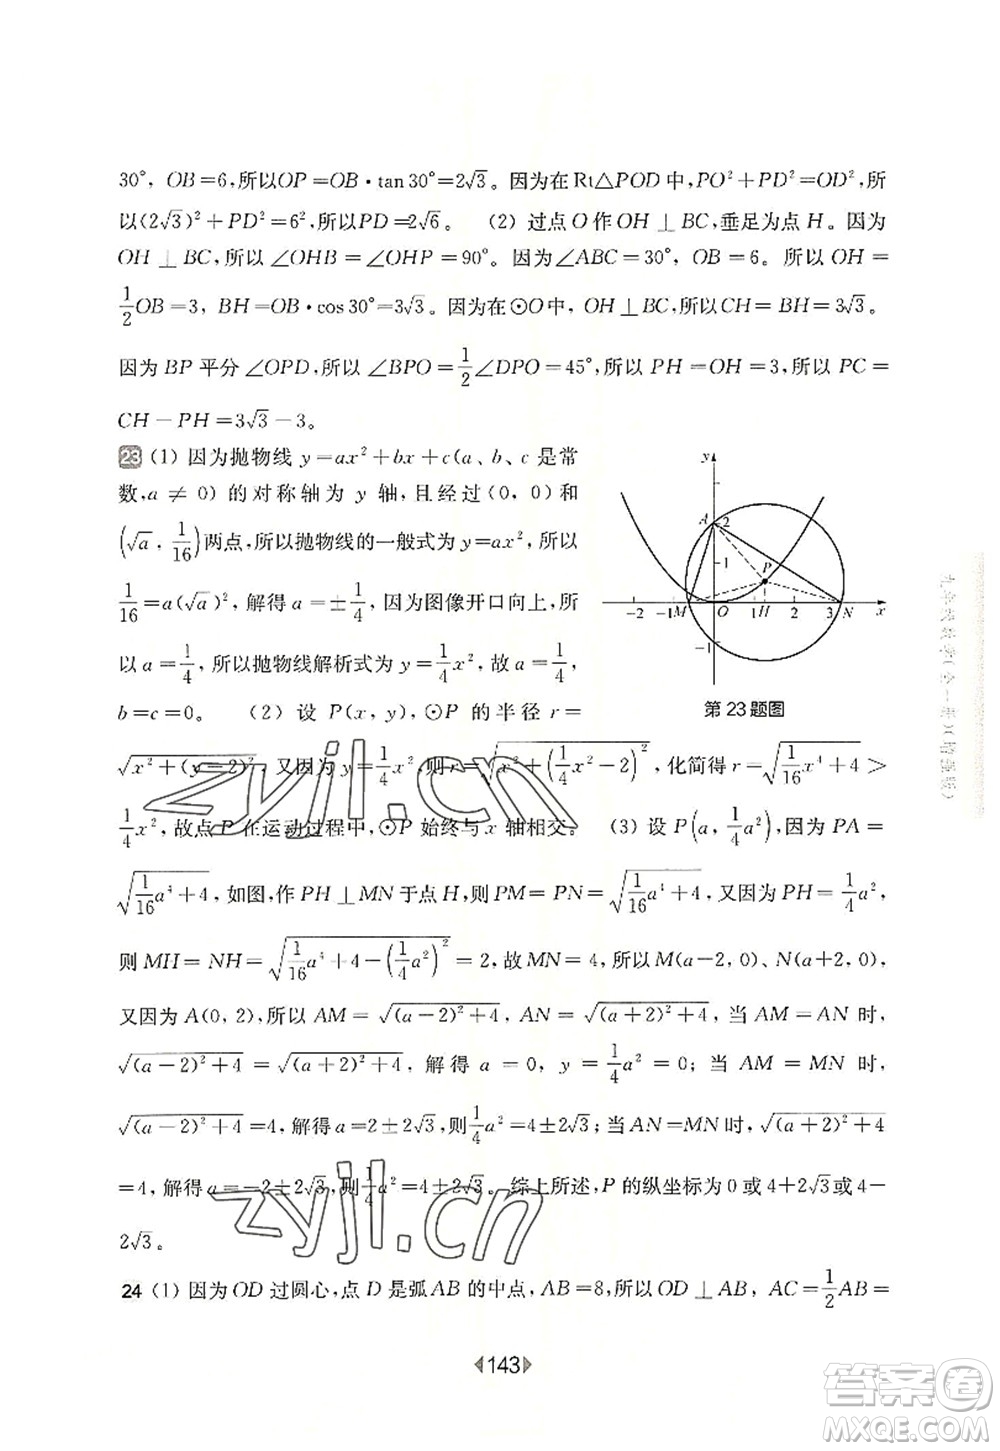 30°, OB=6,所以OP=OB·tan30°=2√3。因为在Rt△POD中,PO²+PD²=OD²,所
以(2√3)²+PD²=6²,所以PD=2√6。 (2) 过点O作OH⊥BC,垂足为点H。因为
OH⊥BC,所以∠OHB=∠OHP=90°。因为∠ABC=30°, OB=6。所以OH=
1/2OB=3, BH=OB·cos30°=3√3。因为在⊙O中, OH⊥BC,所以CH=BH=3√3。
因为BP平分∠OPD,所以∠BPO=1/2∠DPO=45°,所以PH=OH=3,所以PC=
CH-PH=3√3-3。
23 (1) 因为抛物线y=ax²+bx+c(a、b、c是常
数,a≠0)的对称轴为y轴,且经过(0, 0)和
(√a, 1/16)两点,所以抛物线的一般式为y=ax²,所以
1/16=a(√a)²,解得a=±1/4,因为图像开口向上,所
以a=1/4,所以抛物线解析式为y=1/4x²,故a=1/4,
b=c=0。 (2) 设P(x, y),⊙P的半径r=
y
A
2
1
P
-2
-1
M
O
1
H
2
3
N
x
-1
第23题图
√(x²+(y-2)²),又因为y=1/4x²,则r=√(x²+(1/4x²-2)²),化简得r=√(1/16x⁴+4)>
1/4x²,故点P在运动过程中,⊙P始终与x轴相交。 (3) 设P(a, 1/4a²),因为PA=
√(1/16a⁴+4),如图,作PH⊥MN于点H,则PM=PN=√(1/16a⁴+4),又因为PH=1/4a²,
则MH=NH=√(1/16a⁴+4-(1/4a²)²)=2,故MN=4,所以M(a-2, 0)、N(a+2, 0),
又因为A(0, 2),所以AM=√((a-2)²+4), AN=√((a+2)²+4),当AM=AN时,
√((a-2)²+4)=√((a+2)²+4),解得a=0, y=1/4a²=0;当AM=MN时,
√((a-2)²+4)=4,解得a=2±2√3,则1/4a²=4±2√3;当AN=MN时,√((a+2)²+4)
=4,解得a=-2±2√3,则1/4a²=4±2√3。综上所述,P的纵坐标为0或4+2√3或4-
2√3。
24 (1) 因为OD过圆心,点D是弧AB的中点, AB=8,所以OD⊥AB, AC=1/2AB=
143
zyjl.cn
zyjl.cn
答案圈
MXQE.COM